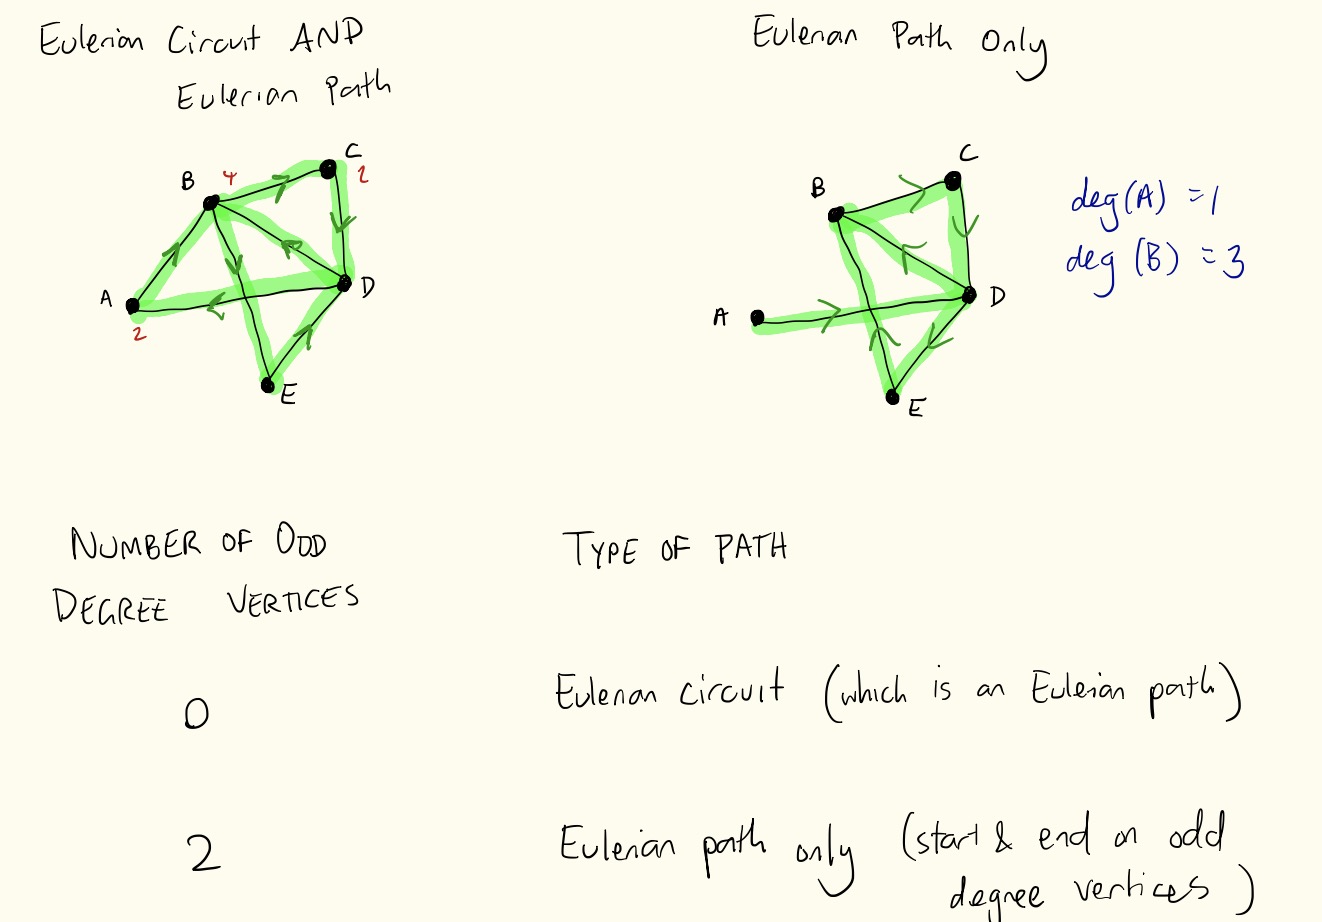 Eulerian Circuit AND
Eulerian Path
B 4
C
2
A
2
D
E
Eulerian Path Only
C
B
A
D
E
deg(A) = 1
deg(B) = 3
NUMBER OF ODD
DEGREE VERTICES
TYPE OF PATH
0
Eulerian circuit (which is an Eulerian path)
2
Eulerian path only (start & end on odd
degree vertices)